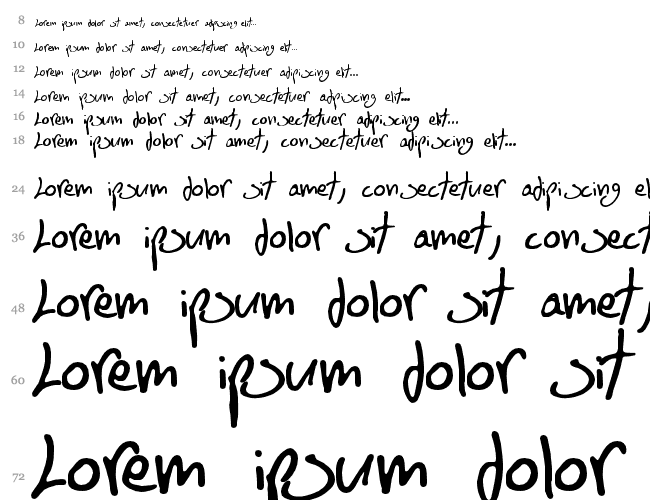 8 Lorem ipsum dolor sit amet, consectetuer adipiscing elit...
10 Lorem ipsum dolor sit amet, consectetuer adipiscing elit...
12 Lorem ipsum dolor sit amet, consectetuer adipiscing elit...
14 Lorem ipsum dolor sit amet, consectetuer adipiscing elit...
16 Lorem ipsum dolor sit amet, consectetuer adipiscing elit...
18 Lorem ipsum dolor sit amet, consectetuer adipiscing elit...
24 Lorem ipsum dolor sit amet, consectetuer adipiscing el
36 Lorem ipsum dolor sit amet, consect
48 Lorem ipsum dolor sit amet,
60 Lorem ipsum dolor sit
72 Lorem ipsum dolor